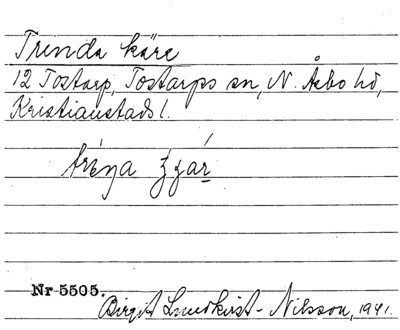 Trenda käre
12 Tostarp, Tostarps sn, N. Åsbo hd,
Kristianstads l.
Nr 5505.
Birgit Lundkvist-Nilsson, 1941.